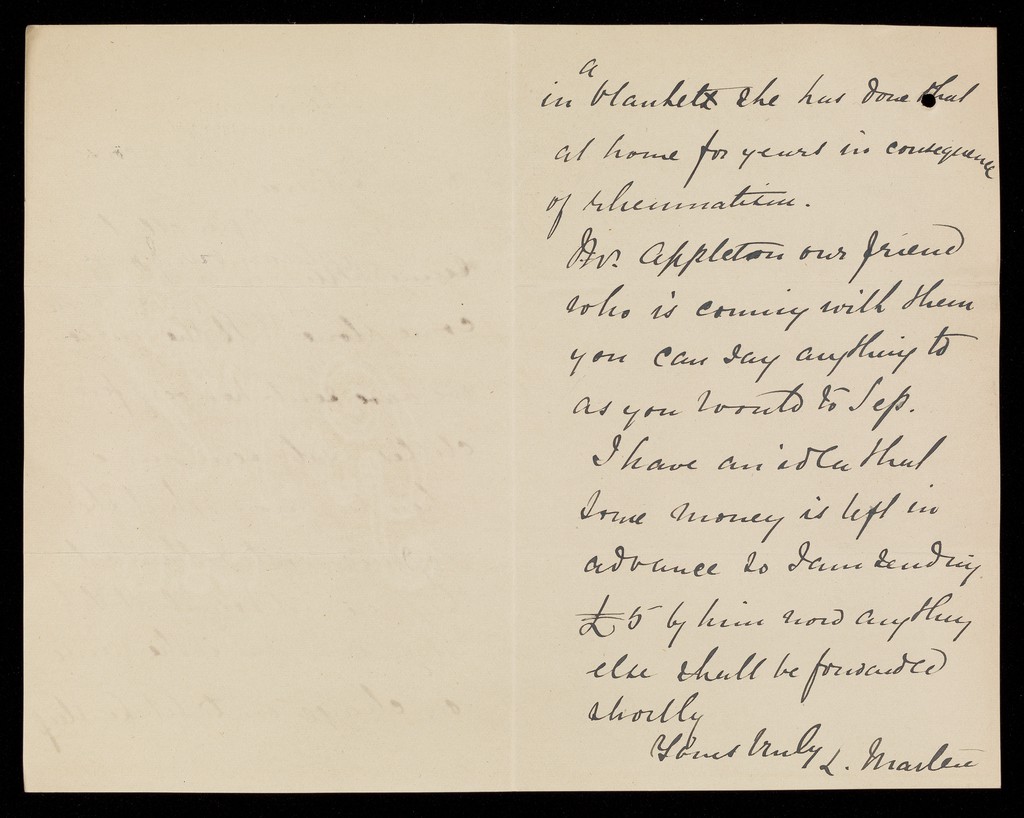 a
in blanket she has done that
at home for years in consequence
of rheumatism.
Mr. Appleton our friend
who is coming with them
you can say anything to
as you would to Sep.
I have an idea that
some money is left in
advance so I am sending
£5 by him now anything
else shall be forwarded
shortly
Yours truly L.